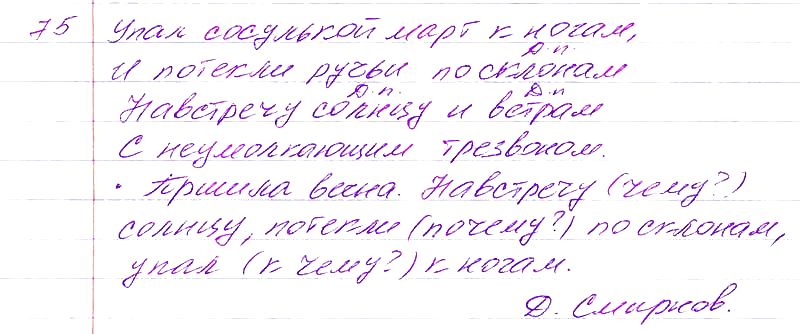 75 Упал сосулькой март к ногам,
Д.п.
И потекли ручьи по склонам
Д.п. Д.п
Навстречу солнцу и ветрам
С неумолкающим трезвоном.
• Пришила весна. Навстречу (чему?)
солнцу, потекли (почему?) по склонам,
упал (к чему?) к ногам.
Д. Смирнов.